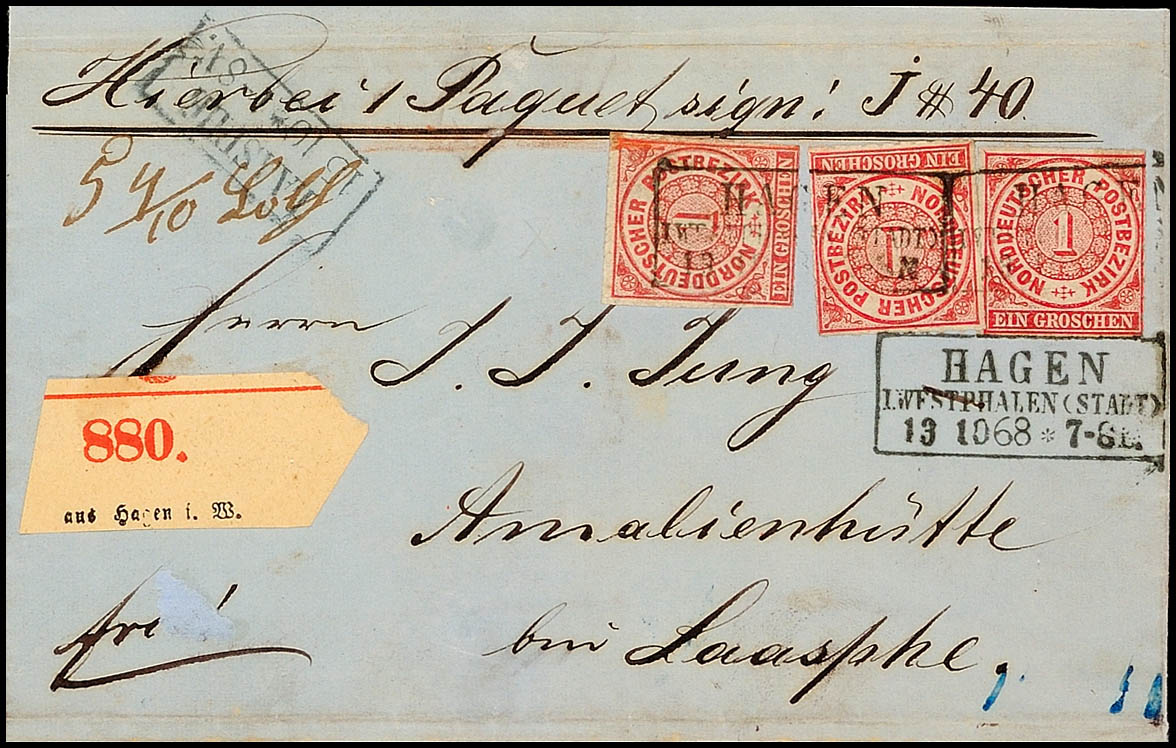 Hierbei 1 Paquet sign: J # 40.
5 4/10 Loth
NORDDEUTSCHER POSTBEZIRK
1
EIN GROSCHEN
NORDDEUTSCHER POSTBEZIRK
1
EIN GROSCHEN
NORDDEUTSCHER POSTBEZIRK
1
EIN GROSCHEN
HAGEN
Herrn J. J. Jung
HAGEN
I.WESTPHALEN (STADT)
13 10 68 * 7-8 N.
880.
aus Hagen i. W.
Amalienhütte
bei Laasphe.